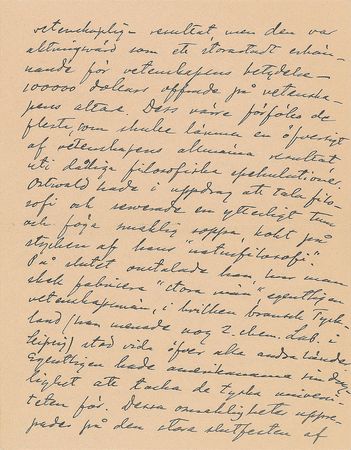 vetenskaplig resultat men den var
aktningsvärd som ett storartadt erkän-
nande för vetenskapens betydelse
100000 dollars offrade på vetenska-
pens altare. Dess värre förföllo de
fleste, som skulle lämna en öfversigt
af vetenskapens allmänna resultat
uti dåliga filosofiska spekulationer.
Ostwald hade i uppdrag att tala filo-
sofi och serverade en ytterligt tunn
och föga smaklig soppa, kokt på
stycken af hans "naturfilosofi".
På slutet omtalade han hur man
skall fabricera "stora män" egentligen
vetenskapsmän, i hvilken bransch Tysk-
land (han menade nog 2. chem. Lab. i
Leipzig) stod vida öfver alla andra länder.
Egentligen hade amerikanarna
lighet att tacka de tyska universi-
teten för. Dessa osmakligheter uppre-
pades på den stora slutfesten af